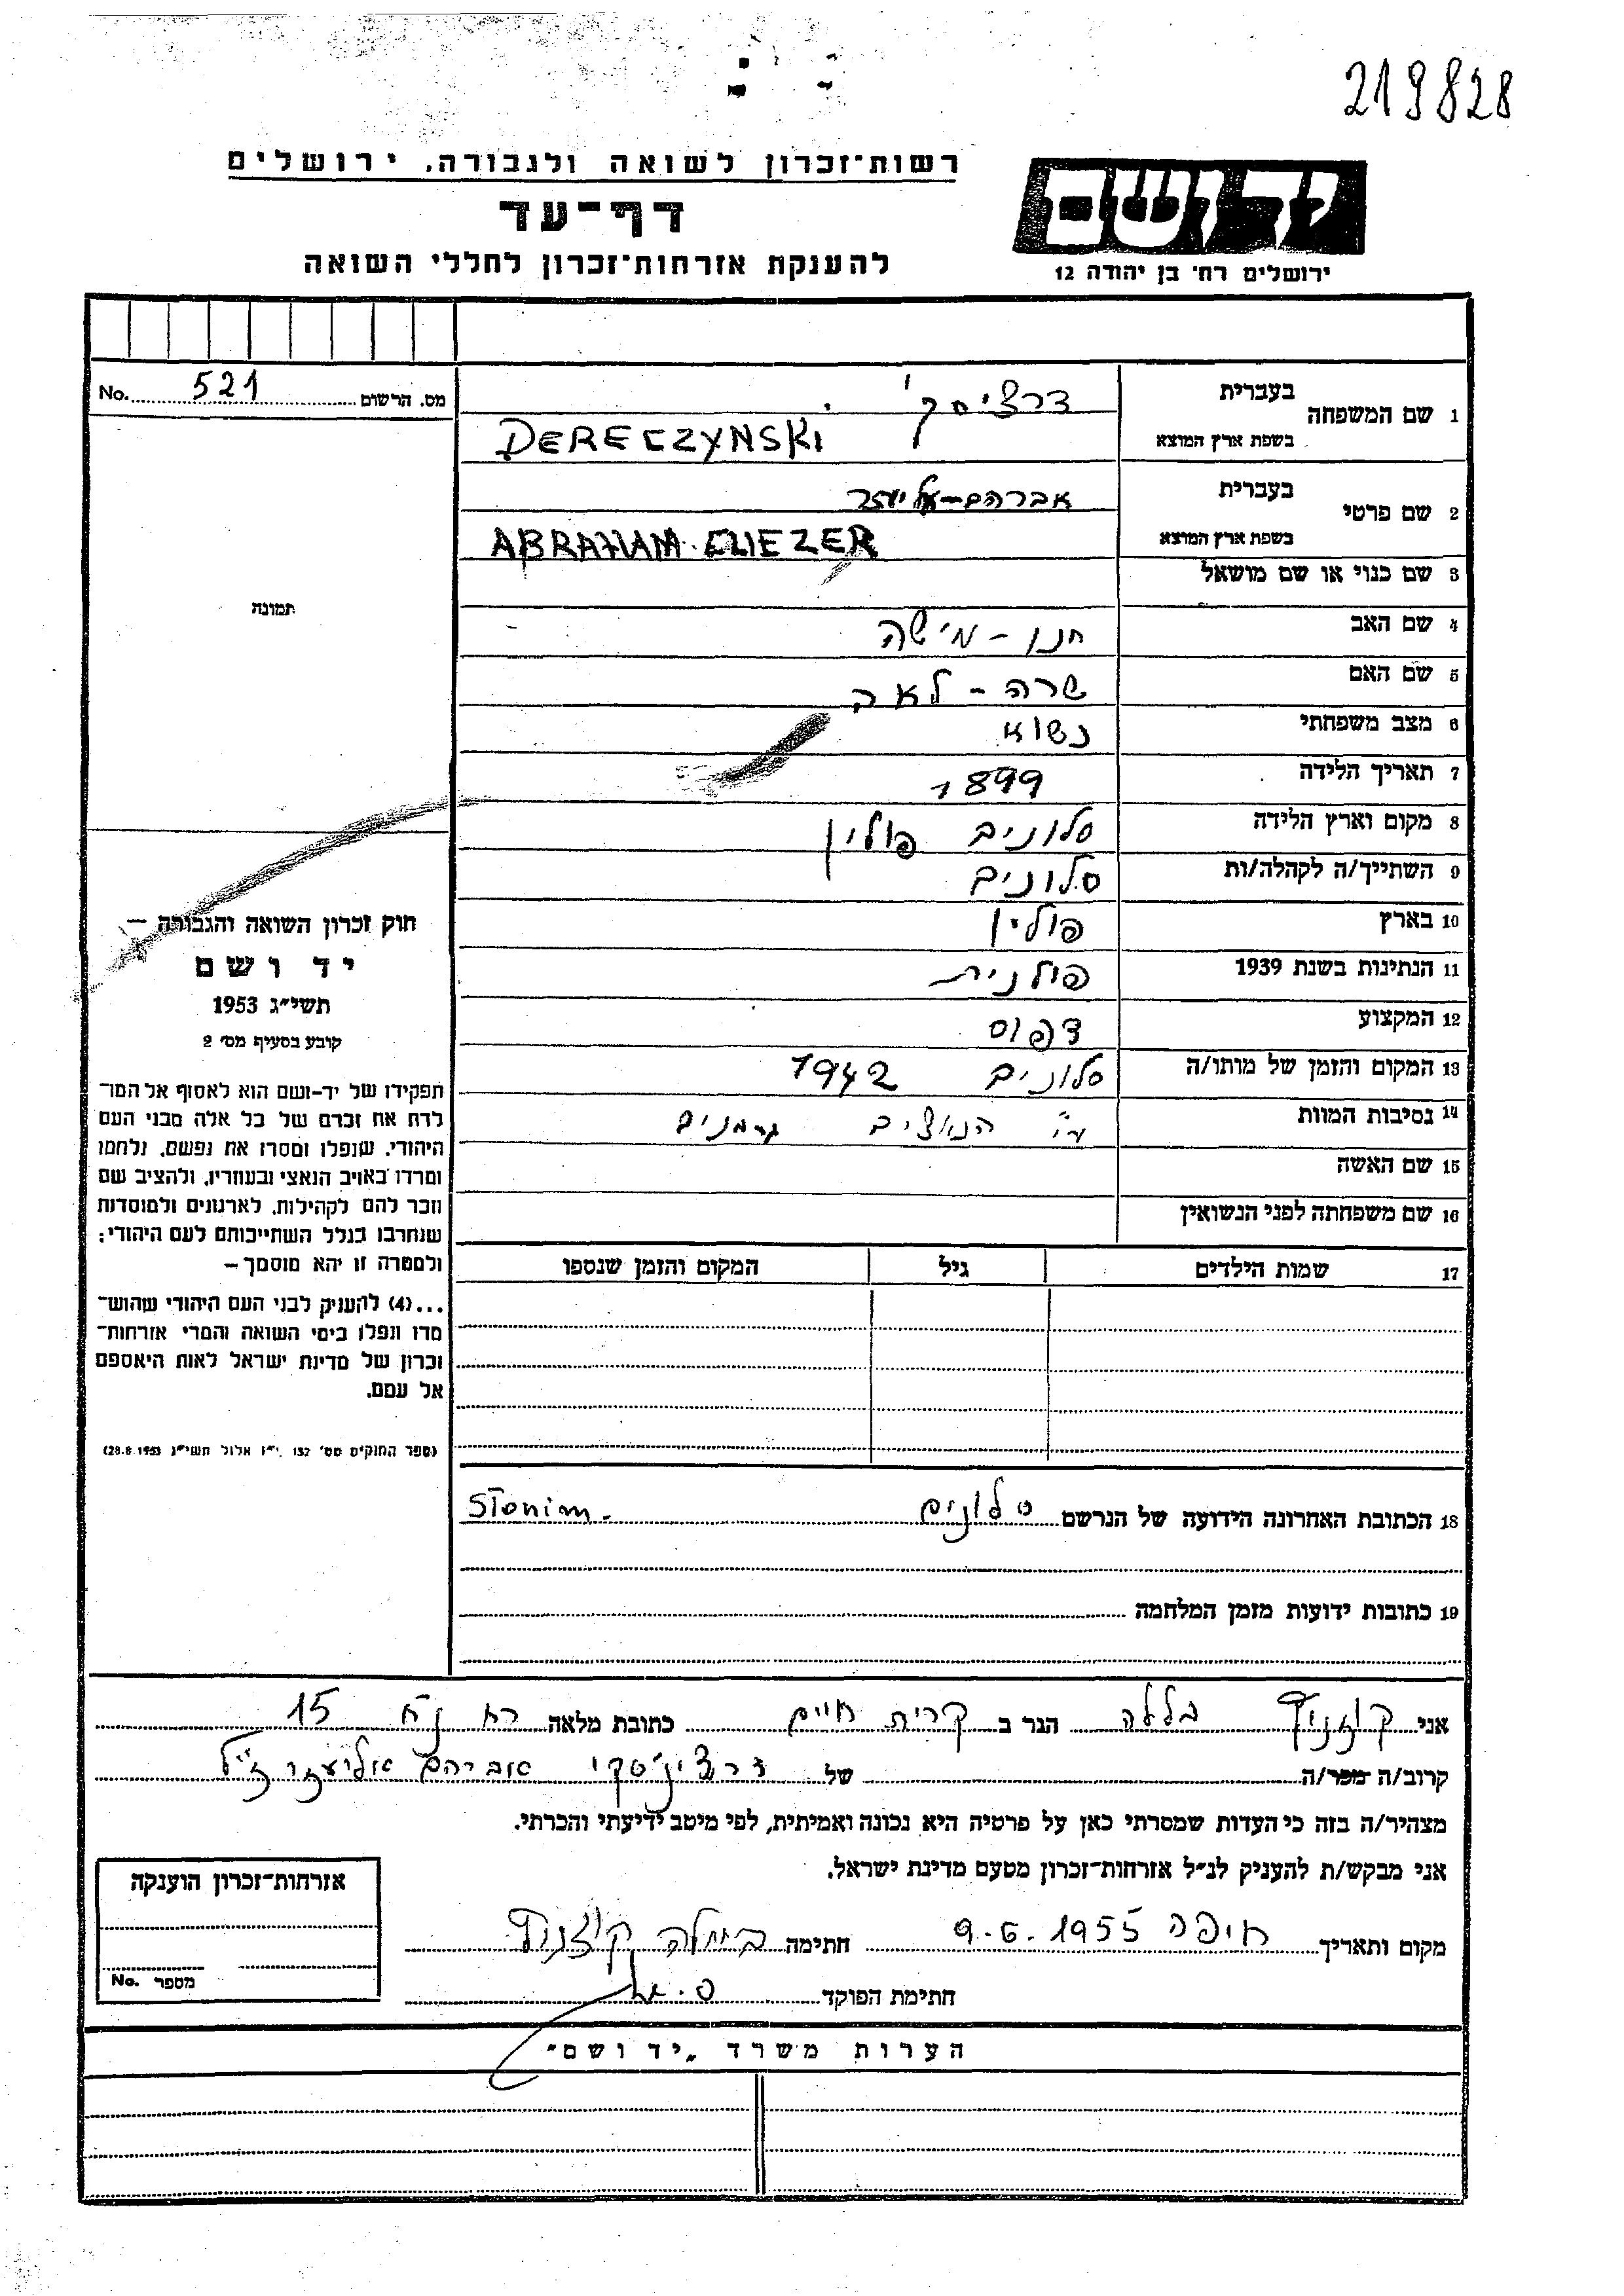 219828
רשות־זכרון לשואה ולגבורה, ירושלים
דף־עד
להענקת אזרחות־זכרון לחללי השואה
יד ושם
ירושלים רח' בן יהודה 12
מס. הרשום 521 No.
תמונה
1 שם המשפחה
בעברית
דרצינסקי
בשפת ארץ המוצא
DERECZYNSKI
2 שם פרטי
בעברית אברהם-אליעזר
בשפת ארץ המוצא
ABRAHAM ELIEZER
3 שם כנוי או שם מושאל
4 שם האב חנן - מישה
5 שם האם שרה - לאה
6 מצב משפחתי נשוא
7 תאריך הלידה 1899
8 מקום וארץ הלידה סלונים פולין
9 השתייך/ה לקהלה/ות סלונים
10 בארץ פולין
11 הנתינות בשנת 1939 פולנית
12 המקצוע דפוס
13 המקום והזמן של מותו/ה סלונים 1942
14 נסיבות המוות ע"י הנאצים גרמנים
15 שם האשה
16 שם משפחתה לפני הנשואין
17 שמות הילדים גיל המקום והזמן שנספו
18 הכתובת האחרונה הידועה של הנרשם סלונים Slonim.
19 כתובות ידועות מזמן המלחמה
חוק זכרון השואה והגבורה –
יד ושם
תשי"ג 1953
קובע בסעיף מס' 2
תפקידו של יד-ושם הוא לאסוף אל המו־
לדת את זכרם של כל אלה מבני העם
היהודי, שנפלו ומסרו את נפשם, נלחמו
ומרדו באויב הנאצי ובעוזריו, ולהציב שם
וזכר להם לקהילות, לארגונים ולמוסדות
שנחרבו בגלל השתייכותם לעם היהודי;
ולמטרה זו יהא מוסמך –
...(4) להעניק לבני העם היהודי שהוש־
מדו ונפלו בימי השואה והמרי אזרחות־
זכרון של מדינת ישראל לאות היאספם
אל עמם.
(ספר החוקים מס' 132, י"ז אלול תשי"ג 28.8.1953)
אני בלה הגר ב קרית חיים כתובת מלאה 15
קרוב/ה מכר/ה של דרצינסקי אברהם אליעזר ז"ל
מצהיר/ה בזה כי העדות שמסרתי כאן על פרטיה היא נכונה ואמיתית, לפי מיטב ידיעתי והכרתי.
אני מבקש/ת להעניק לנ"ל אזרחות־זכרון מטעם מדינת ישראל.
מקום ותאריך חיפה 9.6.1955 חתימה
חתימת הפוקד
אזרחות־זכרון הוענקה
מספר No.
הערות משרד „יד ושם"